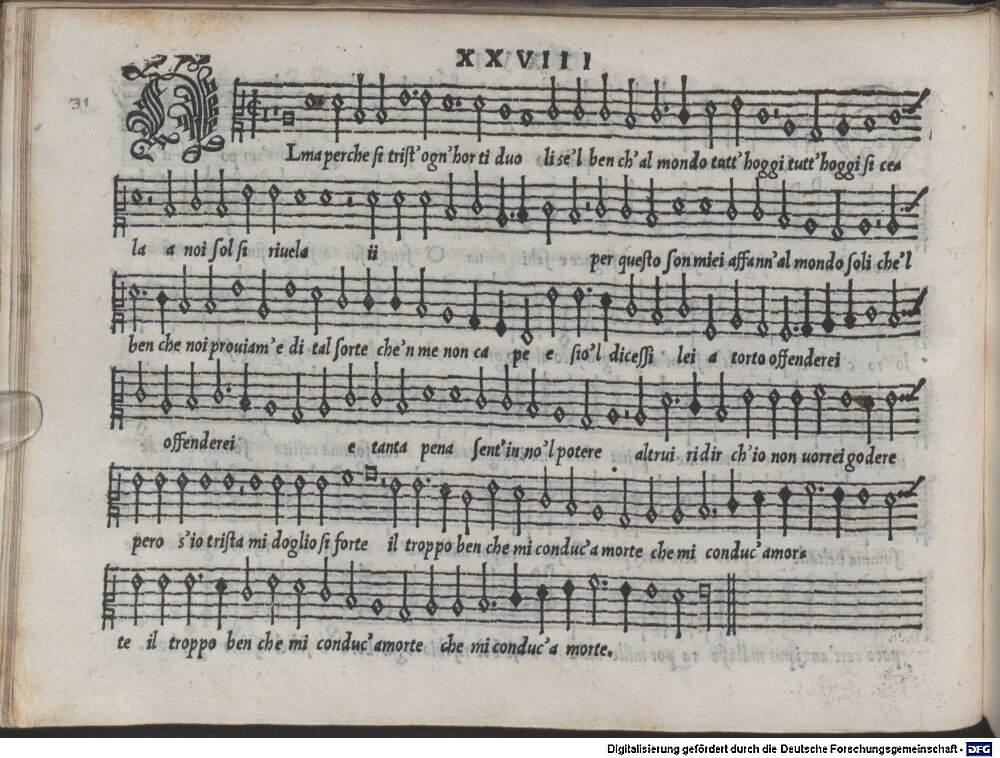 XXVIII
31
ALma perche si trist' ogn' hor ti duo li se'l ben ch' al mondo tutt' hoggi tutt' hoggi si ce-
la a noi sol si riuela ii per questo son miei affann' al mondo soli che'l
ben che noi prouiam' e di tal sorte che'n me non ca pe e sio'l dicessi lei a torto offenderei
offenderei e tanta pena sent' in no'l potere altrui ridir ch'io non uorrei godere
pero s'io trista mi doglio si forte il troppo ben che mi conduc' a morte che mi conduc' a mor-
te il troppo ben che mi conduc' a morte che mi conduc' a morte.
Digitalisierung gefördert durch die Deutsche Forschungsgemeinschaft - DFG